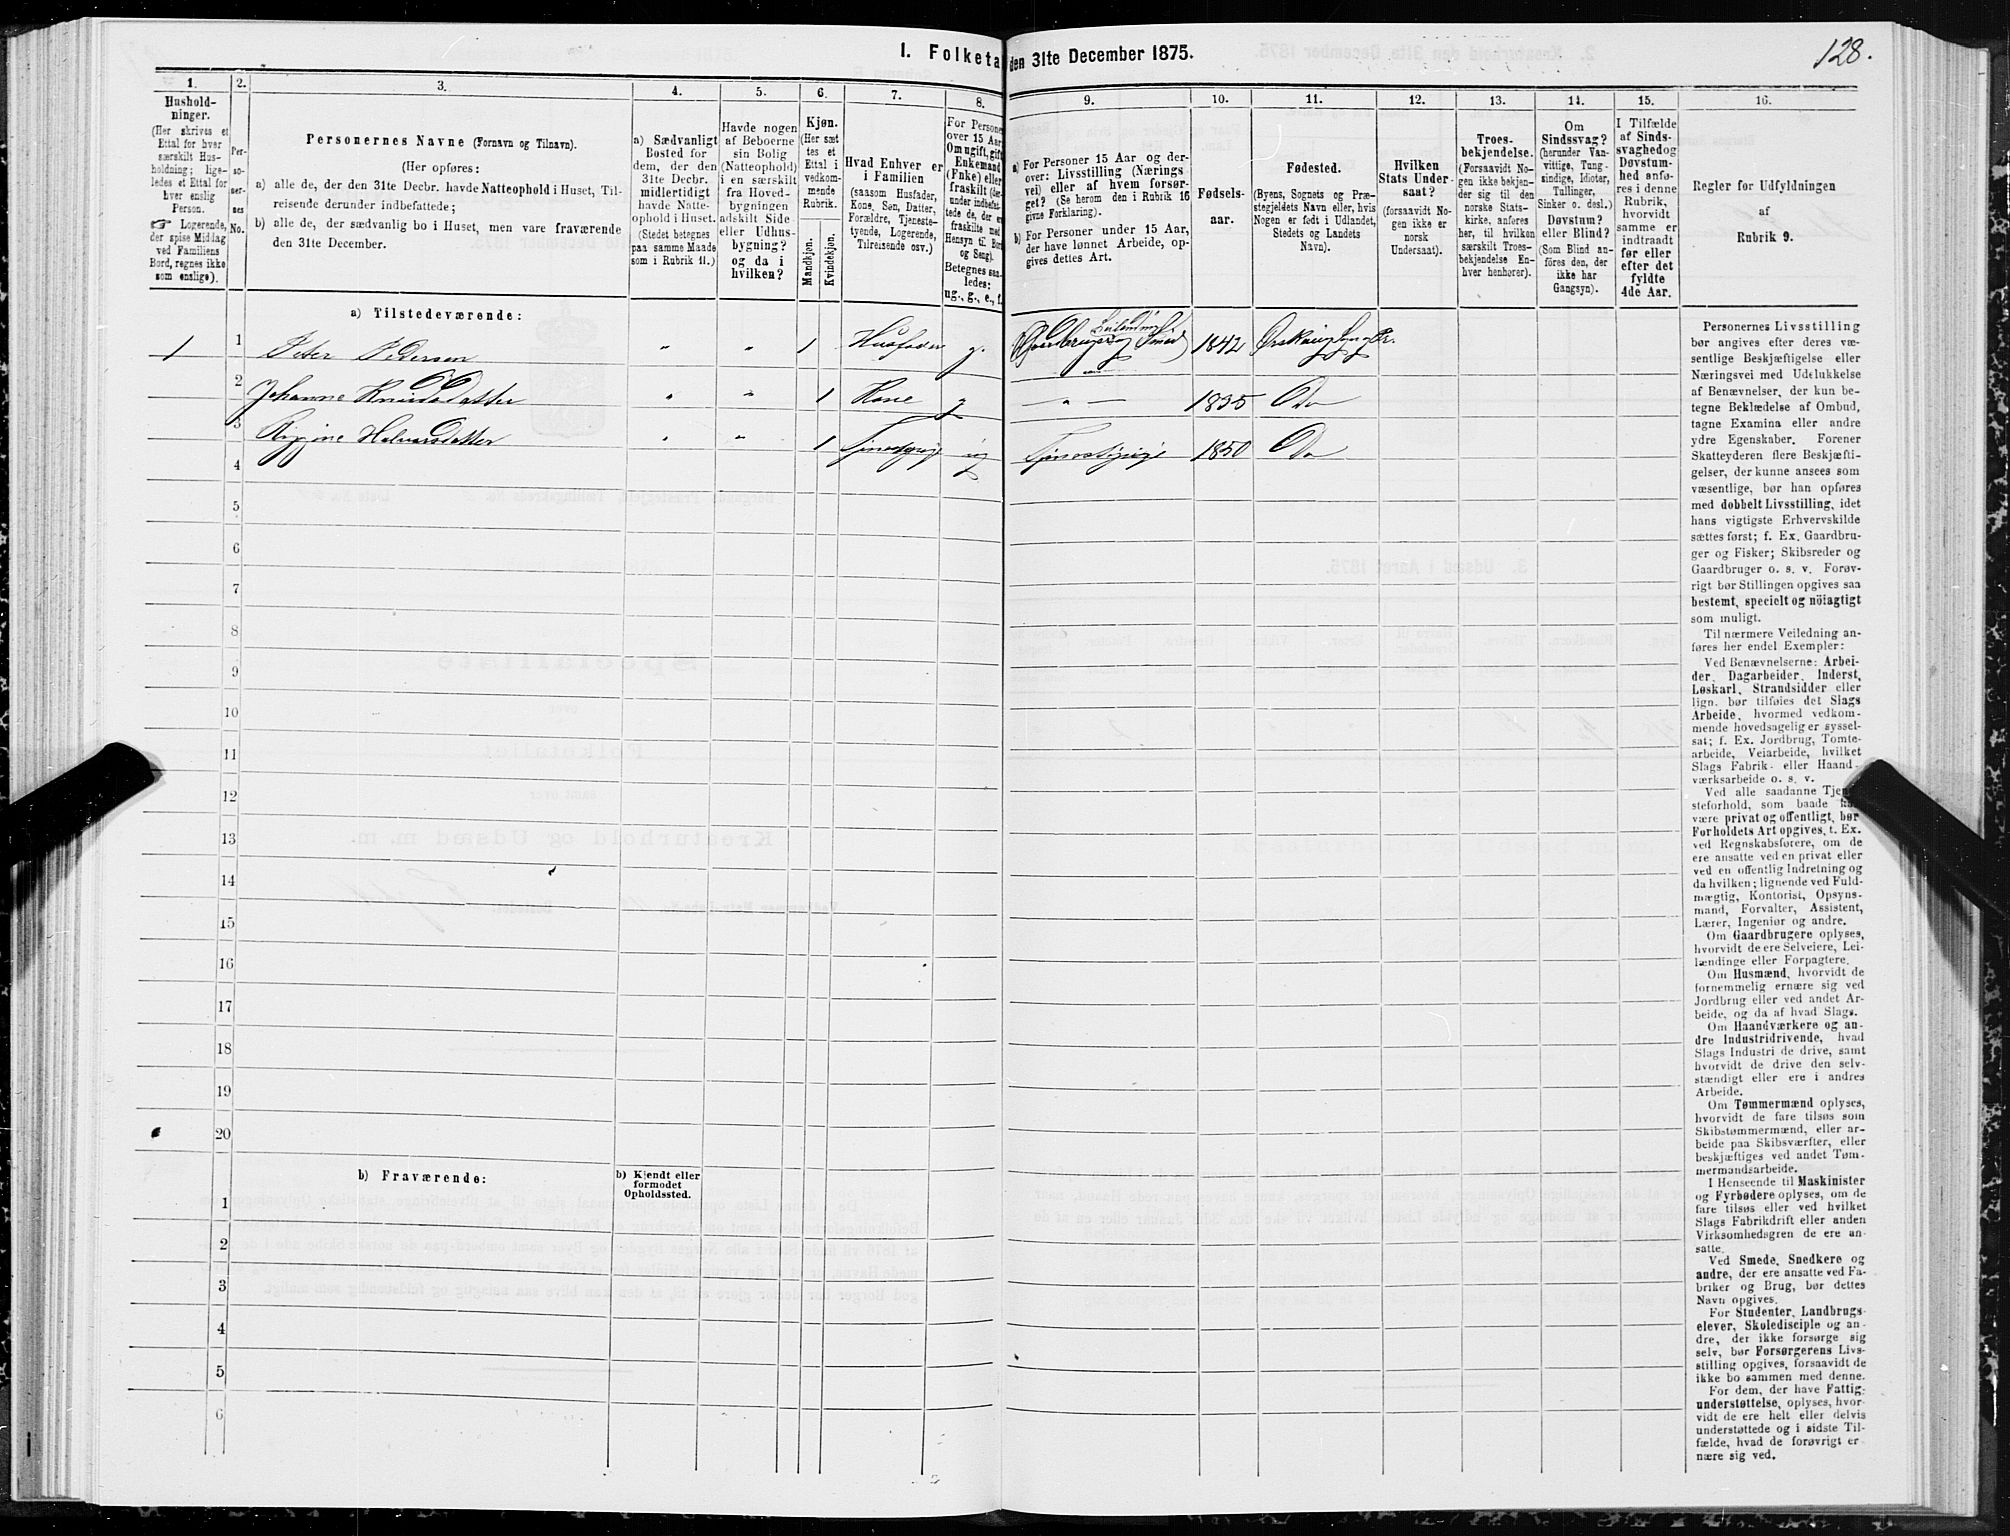 I. Folketa den 31te December 1875.
128.
1.
Husholdninger.
(Her skrives et
Ettal for hver
særskilt Husholdning; ligeledes et Ettal for
hver enslig
Person.
☞ Logerende,
der spise Middag
ved Familiens
Bord, regnes ikke
som enslige).
2.
Personernes
No.
3.
Personernes Navne (Fornavn og Tilnavn).
(Her opføres:
a) alle de, der den 31te Decbr. havde Natteophold i Huset, Tilreisende derunder indbefattede;
b) alle de, der sædvanlig bo i Huset, men vare fraværende
den 31te December.
4.
a) Sædvanligt
Bosted for
dem, der den
31te Decbr.
midlertidigt
havde Natteophold i Huset.
(Stedet betegnes
paa samme Maade
som i Rubrik 11.)
5.
Havde nogen
af Beboerne
sin Bolig
(Natteophold)
i en særskilt
fra Hovedbygningen
adskilt Side-
eller Udhusbygning?
og da i
hvilken?
6.
Kjøn.
(Her sættes et
Ettal i
vedkommende
Rubrik.
Mandkjøn.
Kvindekjøn.
7.
Hvad Enhver er
i Familien
(saasom Husfader,
Kone, Søn, Datter,
Forældre, Tjenestetyende, Logerende,
Tilreisende osv.)
8.
For Persone
over 15 Aar
Om ugift, gift
Enkemand
(Enke) eller
fraskilt (derunder indbefattede de, der er
fraskilte med
Hensyn til Bord
og Seng).
Betegnes saaledes:
ug., g., e., f.
9.
a) For Personer 15 Aar og derover: Livsstilling (Næringsvei) eller af hvem forsørget? (Se herom den i Rubrik 16
givne Forklaring).
b) For Personer under 15 Aar,
der have lønnet Arbeide, opgives dettes Art.
10.
Fødselsaar.
11.
Fødested.
(Byens, Sognets og Præstegjeldets Navn eller, hvis
Nogen er født i Udlandet,
Stedets og Landets
Navn).
12.
Hvilken
Stats Undersaat?
(forsaavidt Nogen ikke er
norsk
Undersaat).
13.
Troesbekjendelse.
(Forsaavidt Nogen ikke bekjender sig til den
norske Statskirke, anføres
her, til hvilken
særskilt Troesbekjendelse Enhver henhører).
14.
Om
Sindssvag?
(herunder Vanvittige, Tungsindige, Idioter,
Tullinger,
Sinker o. desl.)
Døvstum?
eller Blind?
(Som Blind anføres den, der
ikke har
Gangsyn).
15.
I Tilfælde
af Sindssvaghed og
Døvstumhed anføres i denne
Rubrik,
hvorvidt
samme er
indtraadt
før eller
efter det
fyldte
4de Aar.
16.
Regler for Udfyldningen
af
Rubrik 9.
a) Tilstedeværende:
1 1 Peter Pedersen " " 1 Husfader g. Gaardbruger Leilænding og Smed 1842 Ørskoug
2 Johanne Knudsdatter " " 1 Kone g — " — 1835 Do
3 Halvorsdatter " " 1 ug Tjenestepige 1850 Do
4
5
6
7
8
9
10
11
12
13
14
15
16
17
18
19
20
b) Fraværende:
b) Kjendt eller
formodet
Opholdssted.
1
2
3
4
5
6
Personernes Livsstilling
bør angives efter deres væsentlige Beskjæftigelse eller
Næringsvei med Udelukkelse
af Benævnelser, der kun betegne Beklædelse af Ombud,
tagne Examina eller andre
ydre Egenskaber. Forener
Skatteyderen flere Beskjæftigelser, der kunne ansees som
væsentlige, bør han opføres
med dobbelt Livsstilling, idet
hans vigtigste Erhvervskilde
sættes først; f. Ex. Gaardbruger og Fisker; Skibsreder og
Gaardbruger o. s. v. Forøvrigt bør Stillingen opgives saa
bestemt, specielt og nöiagtigt
som muligt.
Til nærmere Veiledning anføres her endel Exempler:
Ved Benævnelserne: Arbeider, Dagarbeider, Inderst,
Løskarl, Strandsidder eller
lign. bør tilføies det Slags
Arbeide, hvormed vedkommende hovedsagelig er sysselsat; f. Ex. Jordbrug, Tomtearbeide, Veiarbeide, hvilket
Slags Fabrik- eller Haandværksarbeide o. s. v.
Ved alle saadanne Tjenesteforhold, som baade kan
være privat og offentligt, bør
Forholdets Art opgives, t. Ex.
ved Regnskabsførere, om de
ere ansatte ved en privat eller
ved en offentlig Indretning og
da hvilken; lignende ved Fuldmægtig, Kontorist, Opsynsmand, Forvalter, Assistent,
Lærer, Ingeniør og andre.
Om Gaardbrugere oplyses,
hvorvidt de ere Selveiere, Leilændinge eller Forpagtere.
Om Husmænd, hvorvidt de
fornemmelig ernære sig ved
Jordbrug eller ved andet Arbeide, og da af hvad Slags.
Om Haandværkere og andre Industridrivende, hvad
Slags Industri de drive, samt
hvorvidt de drive den selvstændigt eller ere i andres
Arbeide.
Om Tømmermænd oplyses,
hvorvidt de fare tilsøs som
Skibstømmermænd, eller arbeide paa Skibsværfter, eller
beskjæftiges ved andet Tømmermandsarbeide.
I Henseende til Maskinister
og Fyrbødere oplyses, om de
fare tilsøs eller ved hvilket
Slags Fabrikdrift eller anden
Virksomhedsgren de ere ansatte.
Ved Smede, Snedkere og
andre, der ere ansatte ved Fabriker og Brug, bør dettes
Navn opgives.
For Studenter, Landbrugselever, Skoledisciple og andre, der ikke forsørge sig
selv, bør Forsørgerens Livsstilling opgives, forsaavidt de
ikke bo sammen med denne.
For dem, der have Fattigunderstøttelse, oplyses, hvorvidt de ere helt eller delvis
understøttede og i sidste Tilfælde, hvad de forøvrigt ernære sig ved.